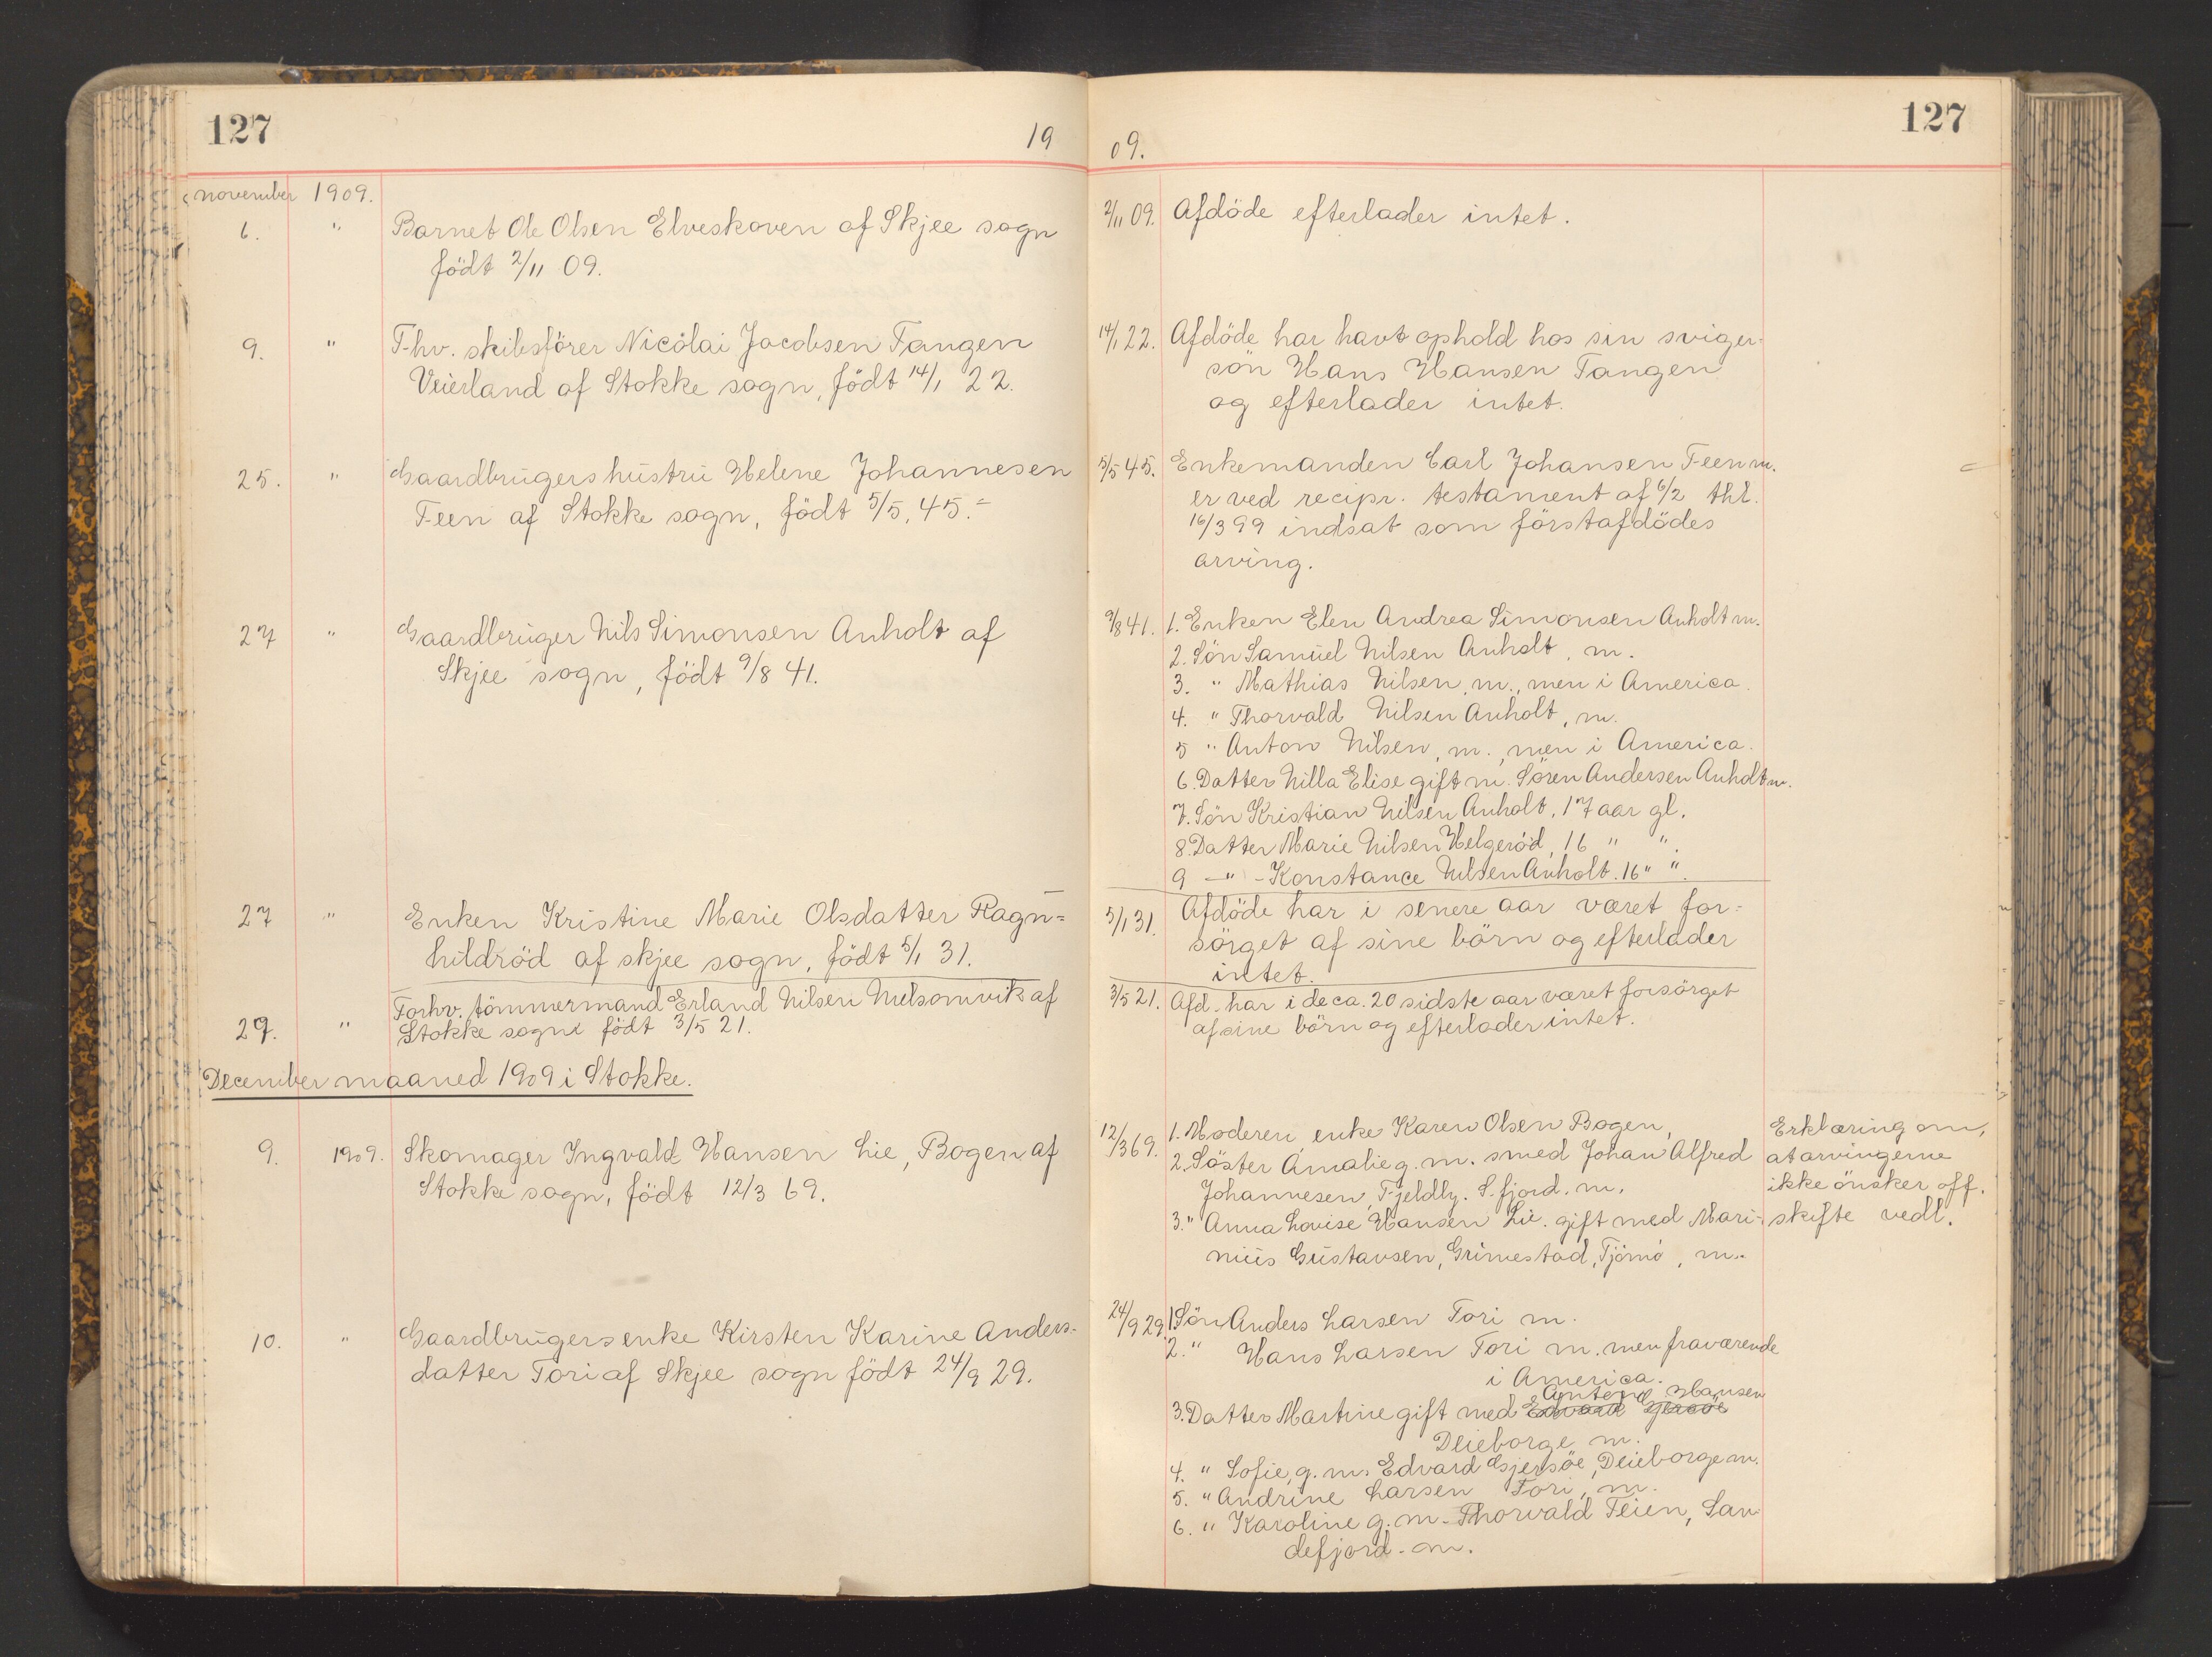 127
19
november 1909.
6. " Barnet Ole Olsen Elveskoven af Skjee sogn
födt 2/11 09.
9. " Fhv. skibsförer Nicolai Jacobsen Tangen
Veierland af Stokke sogn, födt 14/1 22.
25. " Gaardbrugers hustru Helene Johannesen
Feen af Stokke sogn, födt 5/5. 45.
27 " Gaardbruger Nils Simonsen Anholt af
Skjee sogn, födt 9/8 41.
27 " Enken Kristine Marie Olsdatter Ragn=
hildröd af skjee sogn, födt 5/1 31.
Forhv. tömmermand Erland Nilsen Melsomvik af
29. " Stokke sogn födt 3/5 21.
December maaned 1909 i Stokke.
9. 1909. Skomager Ingvald Hansen Lie, Bogen af
Stokke sogn, födt 12/3 69.
10. " Gaardbrugersenke Kirsten Karine Anders-
datter Tori af Skjee sogn födt 24/9 29.
127
09.
2/11 09. Afdöde efterlader intet.
14/1 22. Afdöde har havt ophold hos sin sviger-
sön Hans Hansen Tangen
og efterlader intet.
5/5 45. Enkemanden Carl Johansen Feen m.
er ved recipr. testament af 6/2 thl.
16/3 99 indsat som förstafdödes
arving.
9/8 41. 1. Enken Elen Andrea Simonsen Anholt m.
2. Sön Samuel Nilsen Anholt, m.
3. " Mathias Nilsen, m., men i America.
4. " Thorvald Nilsen Anholt, m.
5 " Anton Nilsen, m., men i America.
6. Datter Nilla Elise gift m. Sören Andersen Anholt m.
7. Sön Kristian Nilsen Anholt, 17 aar gl.
8. Datter Marie Nilsen Helgeröd, 16 " ".
9 -"- Konstance Nilsen Anholt. 16 " ".
5/1 31. Afdöde har i senere aar været for-
sörget af sine börn og efterlader
intet.
3/5 21. Afd. har i de ca. 20 sidste aar været forsörget
af sine börn og efterlader intet.
12/3 69. 1. Moderen, enke Karen Olsen Bogen,
2. Söster Amalie g. m. smed Johan Alfred
Johannesen, Fjeldly. S.fjord. m.
3. " Anna Lovise Hansen Lie. gift med Mari-
nius Gustavsen, Grimestad, Tjömö, m.
Erklæring om,
at arvingerne
ikke önsker off.
skifte vedl.
24/9 29. 1. Sön Anders Larsen Tori m.
2. " Hans Larsen Tori m. men fraværende
i America.
Anton Hansen
3. Datter Martine gift med Edvard Gjersöe
Deieborge m.
4. " Sofie, g. m. Edvard Gjersöe, Deieborge m.
5. " Andrine Larsen Tori, m.
6. " Karoline g. m. Thorvald Feien, San-
defjord. m.